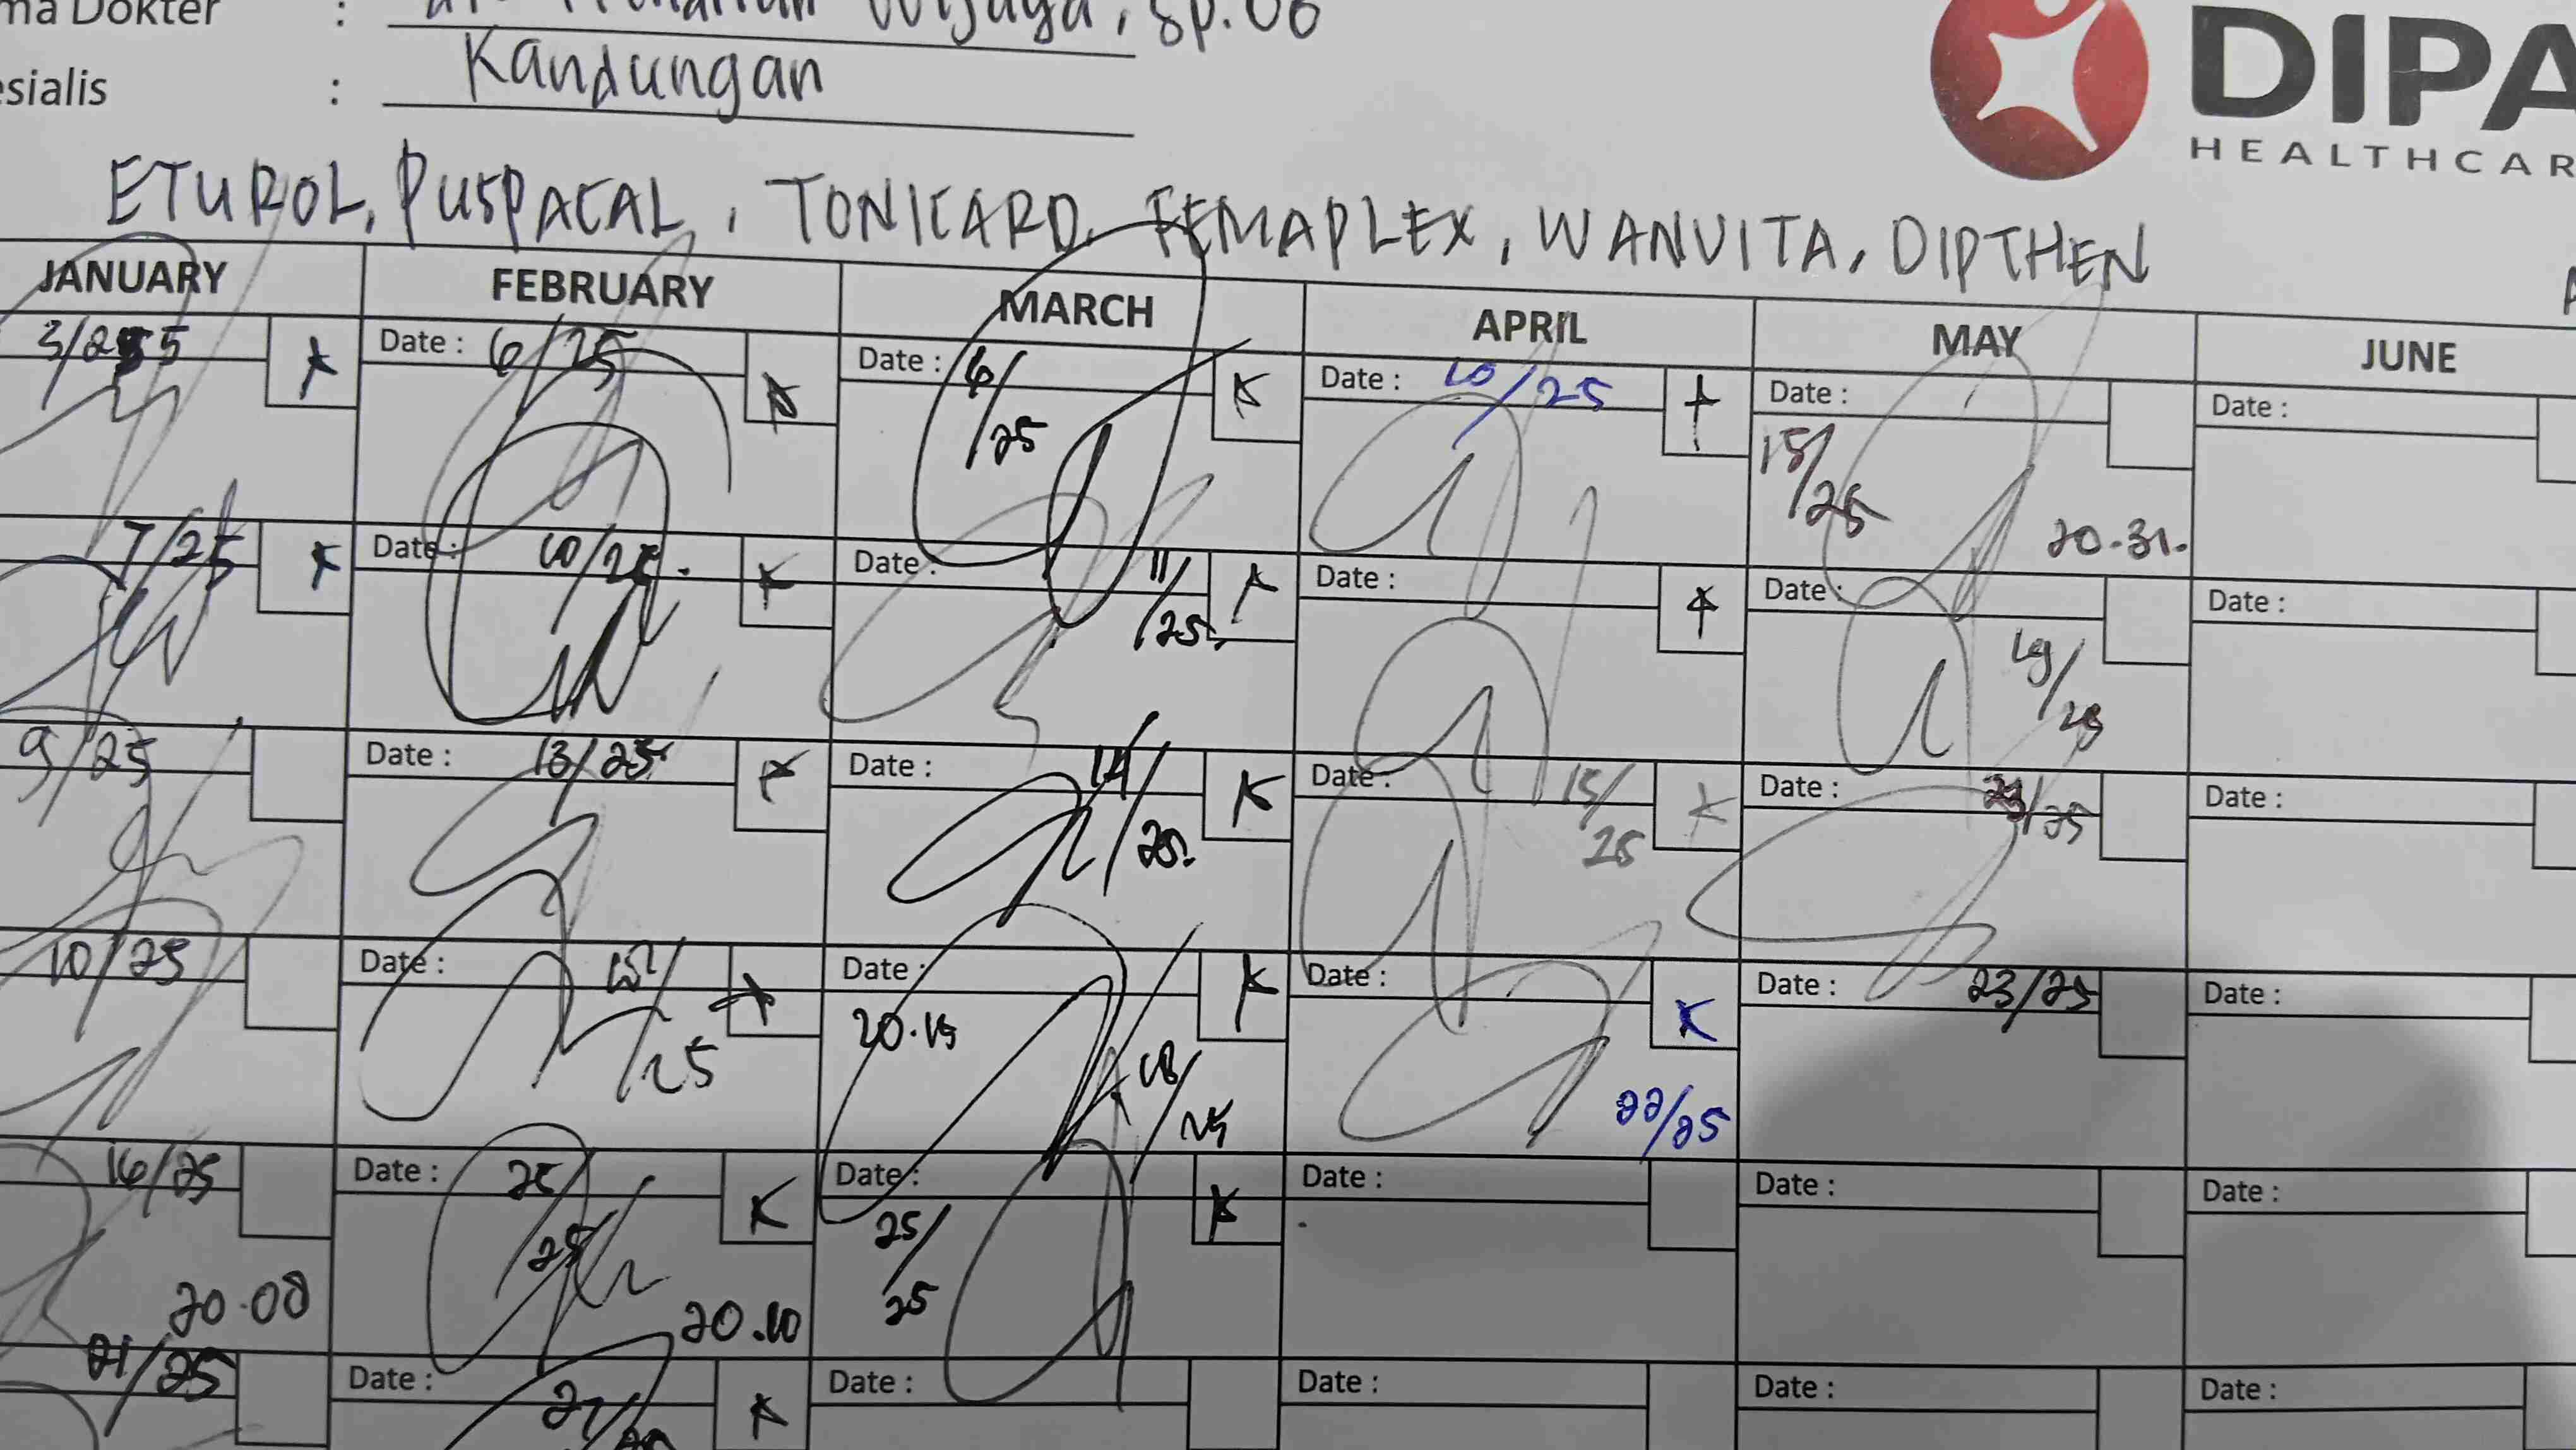 ma Dokter : Wijaya, Sp.OG
esialis : Kandungan
DIPA
HEALTHCAR
ETUROL, PUSPACAL, TONICARD, FEMAPLEX, WANVITA, DIPTHEN
JANUARY FEBRUARY MARCH APRIL MAY JUNE
3/25 Date : 6/25 Date : 6/25 Date : 10/25 Date : 15/25 20.31. Date :
7/25 Date : 10/25. Date : 11/25. Date : Date : 19/25 Date :
9/25 Date : 13/25 Date : 14/25. Date : 15/25 Date : 23/25 Date :
10/25 Date : /25 Date : 20.15 18/25 Date : 22/25 Date : 23/25 Date :
16/25 20.08 Date : 25/25 20.10 Date : 25/25 Date : Date : Date :
21/25 Date : 27/ Date : Date : Date : Date :